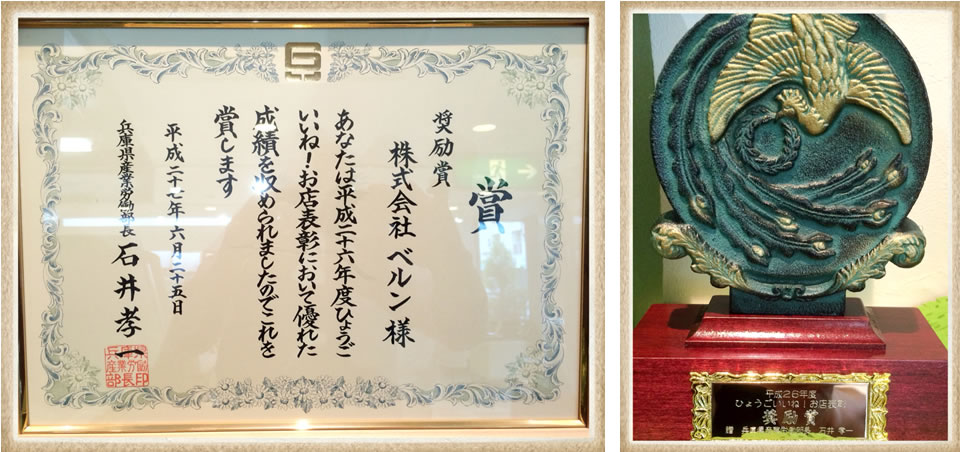 賞
奨励賞
株式会社ベルン様
あなたは平成二十六年度ひょうご
いいね！お店表彰において優れた
成績を収められましたのでこれを
賞します
平成二十七年六月二十五日
兵庫県産業労働部長 石井孝一
平成26年度
ひょうごいいね！お店表彰
奨励賞
贈 兵庫県産業労働部長 石井 孝一